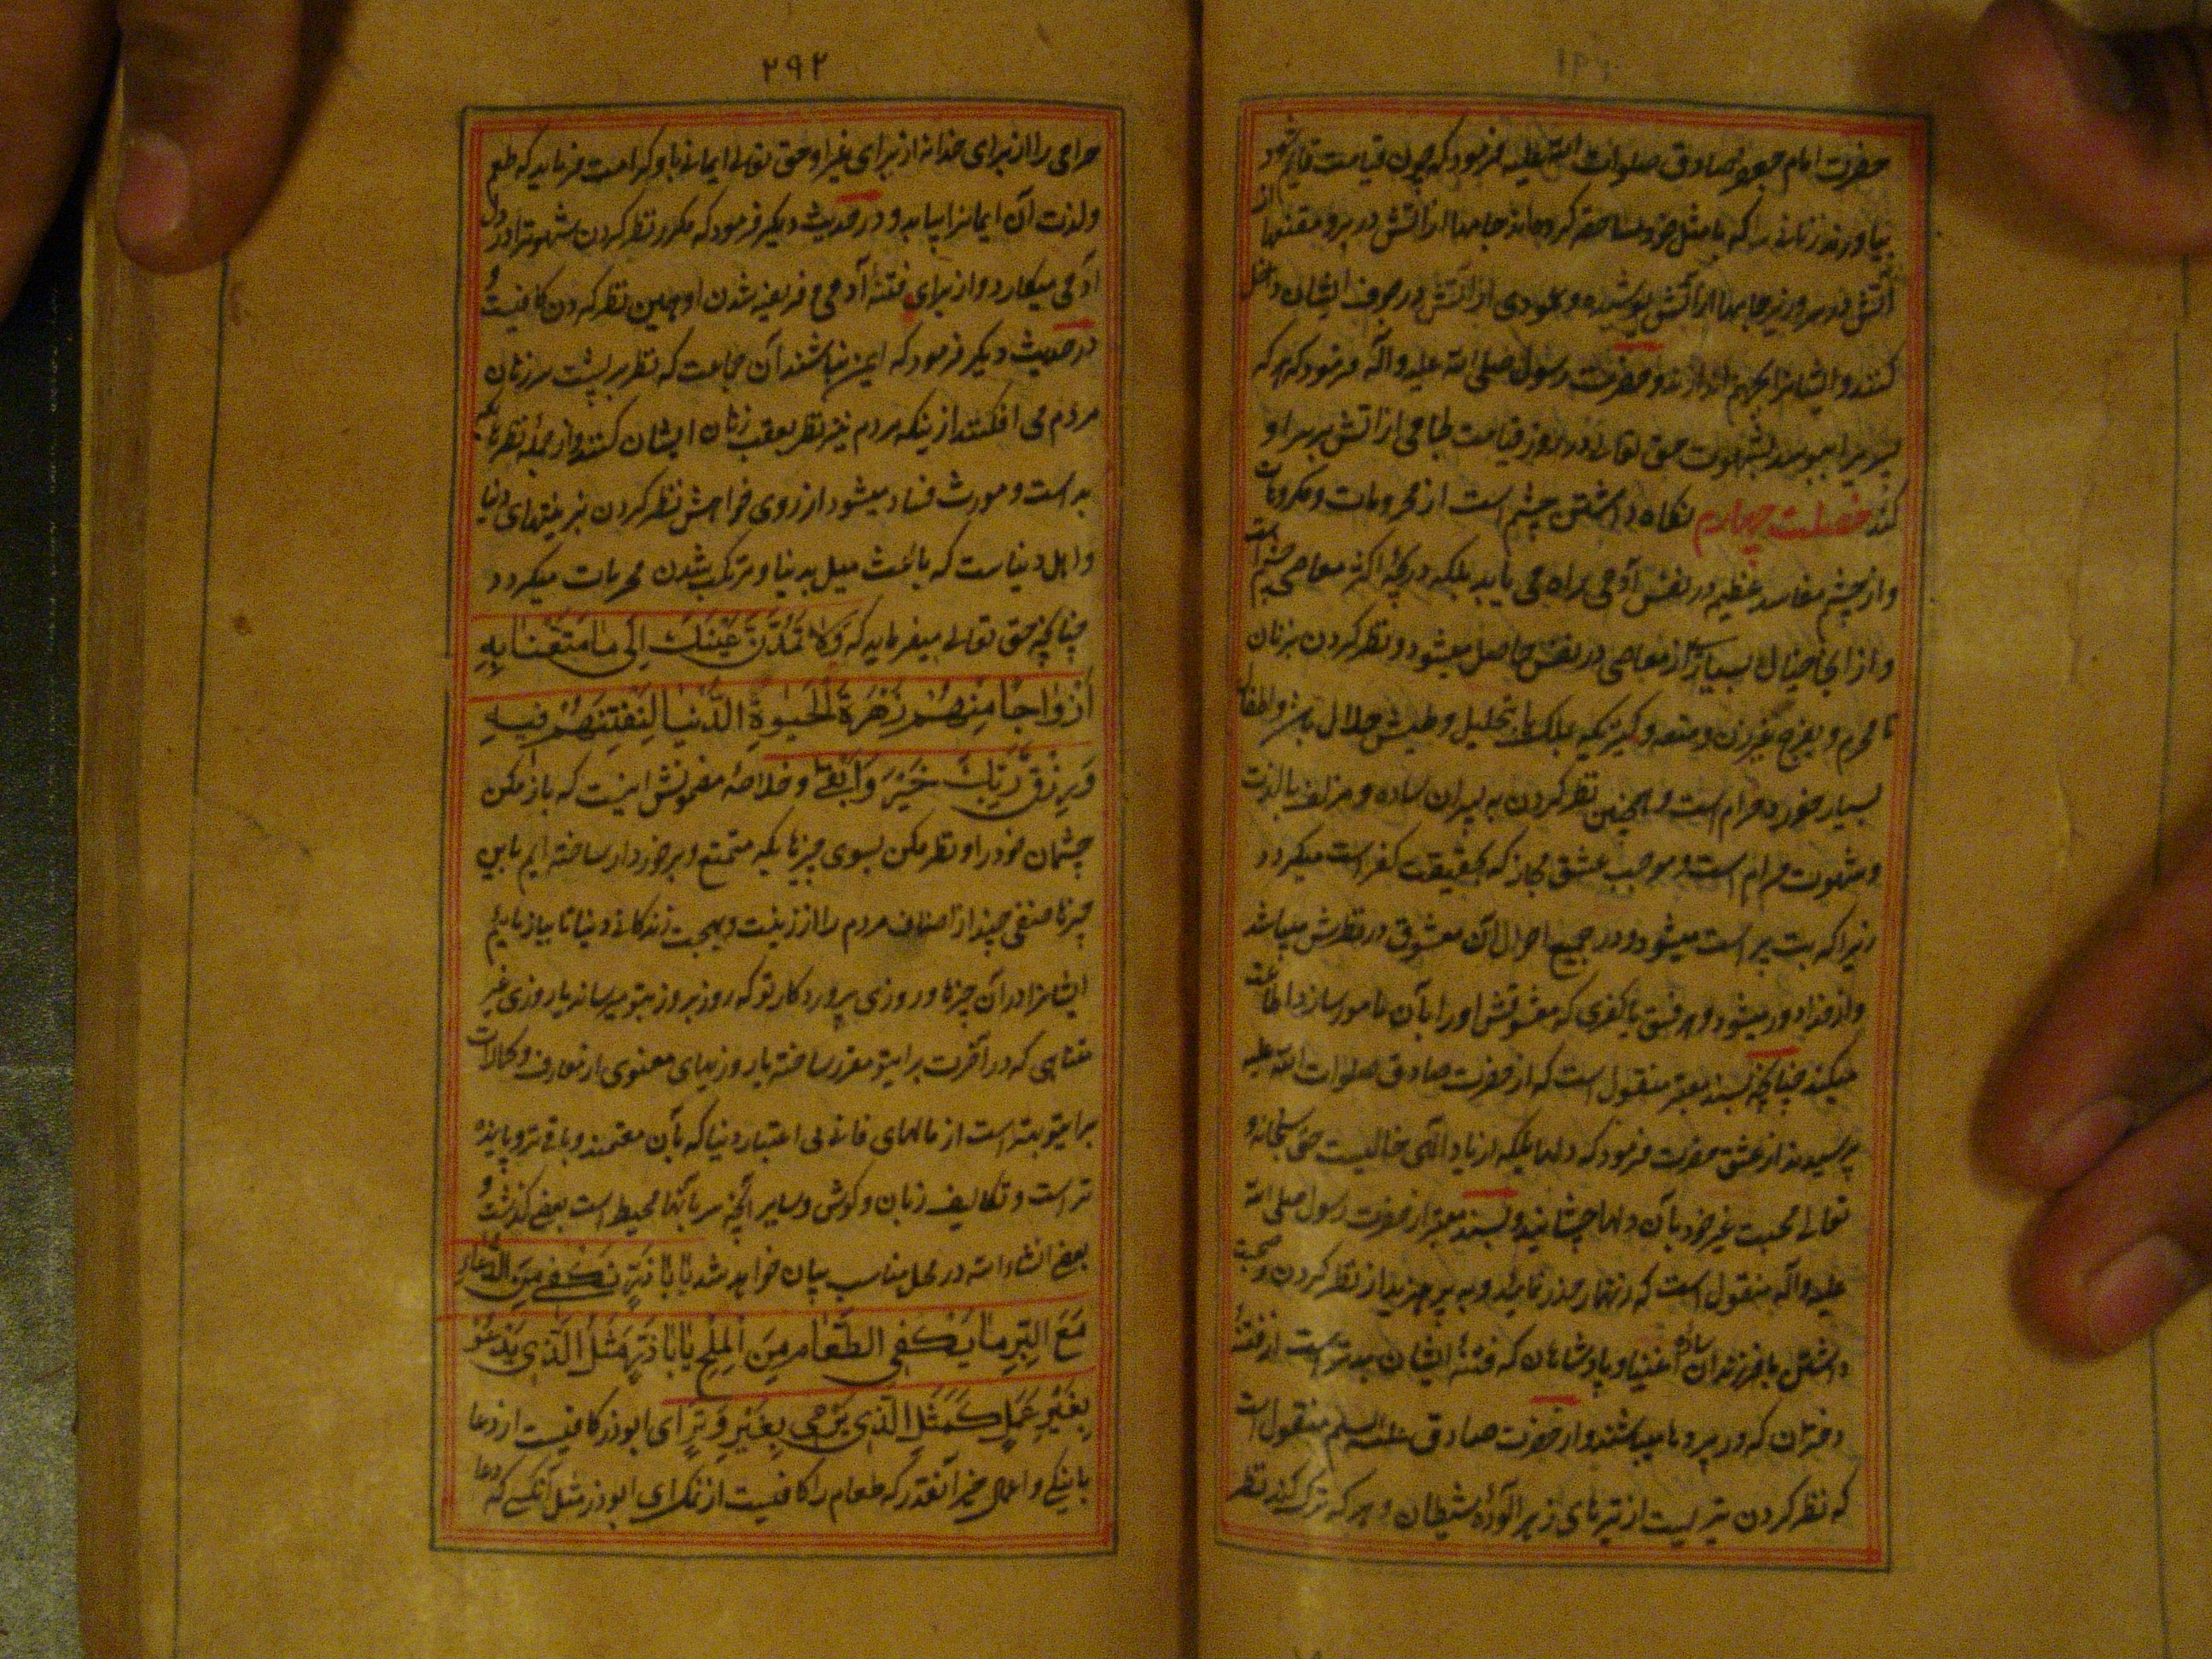 حضرت امام جعفر صادق صلوات الله علیه فرمود که چون قیامت قایم شود
بیاورند زنانی را که با مثل خود مساحقه کرده‌اند جامها از آتش در بر و مقنعها از
آتش در سر و زیر جامها از آتش پوشیده و عمودی از آتش در جوف ایشان داخل
کنند و ایشانرا بجهنم اندازند و حضرت رسول صلی الله علیه و آله فرمود که هر که
پسریرا ببوسد بشهوت حق تعالی در روز قیامت لجامی از آتش بر سر او
کند خصلت چهارم نگاه داشتن چشم است از محرمات و مکروهات
و از چشم مفاسد عظیمه در نفس آدمی راه می یابد بلکه دریچه اکثر معاصی چشم است
و از آنجا خیال بسیاری از معاصی در نفس حاصل میشود و نظر کردن بزنان
نامحرم و بفرج غیر زن و متعه و کنیزیکه بملک یا تحلیل وطیش حلال باشد و اطفال
بسیار خورد حرام است و همچنین نظر کردن به پسران ساده و مزلف با لذت
و شهوت حرام است و موجب عشق مجاز که بحقیقت کفر است میگردد
زیرا که بت پرست میشود و در جمیع احوال آن معشوق در نظرش میباشد
و از خدا دور میشود و هر فسق یا کفری که معشوقش او را بآن مامور سازد اطاعت
میکند چنانچه بسند معتبر منقول است که از حضرت صادق صلوات الله علیه
پرسیدند از عشق حضرت فرمود که دلهاییکه از یاد الهی خالیست حق سبحانه و
تعالی محبت غیر خود بآن دلها چشانیده و بسند معتبر از حضرت رسول صلی الله
علیه و آله منقول است که زنهار حذر نمایید و به پرهیزید از نظر کردن و صحبت
داشتن با فرزندان ساده اغنیا و پادشاهان که فتنه ایشان بدتر است از فتنه
دختران که در پردها میباشند و از حضرت صادق علیه السلم منقول است
که نظر کردن تیریست از تیرهای زهر آلوده شیطان و هر که ترک کند نظر
۲۹۲
حرامی را از برای خدا نه از برای غیر او حق تعالی ایمانی باو کرامت فرماید که طعم
و لذت آن ایمانرا بیابد و در حدیث دیگر فرمود که مکرر نظر کردن شهوترا در دل
آدمی میکارد و از برای فتنه آدمی و فریفته شدن او همین نظر کردن کافیست و
در حدیث دیگر فرمود که ایمن نباشند آن جماعت که نظر بر پشت سر زنان
مردم می افکنند از ینکه مردم نیز نظر بعقب زنان ایشان کنند و از جمله نظرهاییکه
بد است و مورث فساد میشود از روی خواهش نظر کردن بزینتهای دنیا
و اهل دنیاست که باعث میل بدنیا و مرتکب شدن محرمات میگردد
چنانچه حق تعالی میفرماید که وَلَا تَمُدَّنَّ عَیْنَیْکَ اِلٰی مَا مَتَّعْنَا بِهِ
اَزْوَاجًا مِنْهُمْ زَهْرَةَ الْحَیٰوةِ الدُّنْیَا لِنَفْتِنَهُمْ فِیهِ
وَرِزْقُ رَبِّکَ خَیْرٌ وَاَبْقٰی و خلاصه مضمونش اینست که باز مکن
چشمان خود را و نظر مکن بسوی چیزهاییکه متمتع و برخوردار ساخته ایم باین
چیزها صنفی چند از اصناف مردم را از زینت و بهجت زندگانی دنیا تا بیازماییم
ایشانرا در آن چیزها و روزی پروردگار تو که روز بروز بتو میرساند یا روزی غیر
متناهی که در آخرت برایتو مقرر ساخته یا روزیهای معنوی از معارف و کمالات
برایتو بهتر است از مالهای فانی بی اعتبار دنیا که بآن متمتعند و باقی تر و پاینده
تر است و تکالیف زبان و گوش و سایر آنچه سر بآنها محیط است بعضی گذشت و
بعضی انشاء الله در محل مناسب بیان خواهد شد یَا اَبَاذَرٍّ یَکْفِی مِنَ الدُّعَاءِ
مَعَ الْبِرِّ مَا یَکْفِی الطَّعَامَ مِنَ الْمِلْحِ یَا اَبَاذَرٍّ مَثَلُ الَّذِی یَدْعُو
بِغَیْرِ عَمَلٍ کَمَثَلِ الَّذِی یَرْمِی بِغَیْرِ وَتَرٍ ای ابوذر کافیست از دعا
با نیکی و اعمال خیر آنقدر که طعام را کافیست از نمک ای ابوذر مثل آنکسی که دعا